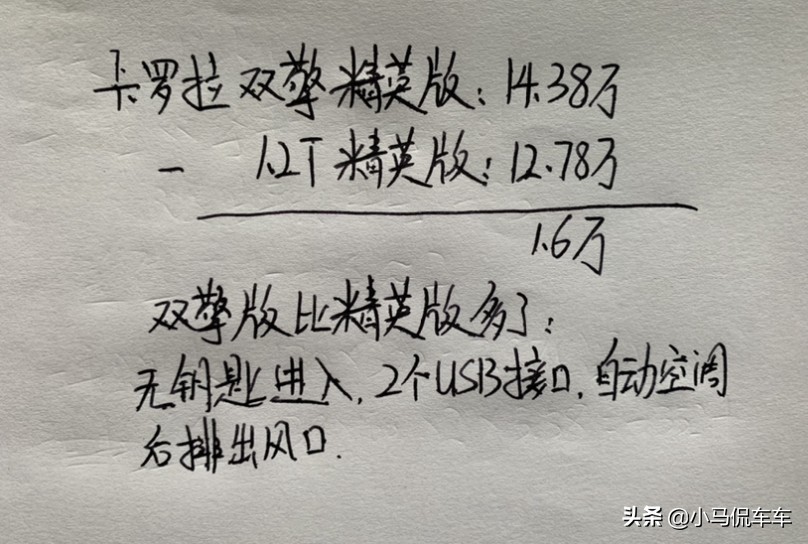 卡罗拉双擎精英版：14.38万
- 1.2T精英版：12.78万
1.6万
双擎版比精英版多了：
无钥匙进入，2个USB接口，自动空调
后排出风口.
头条 @小马侃车车